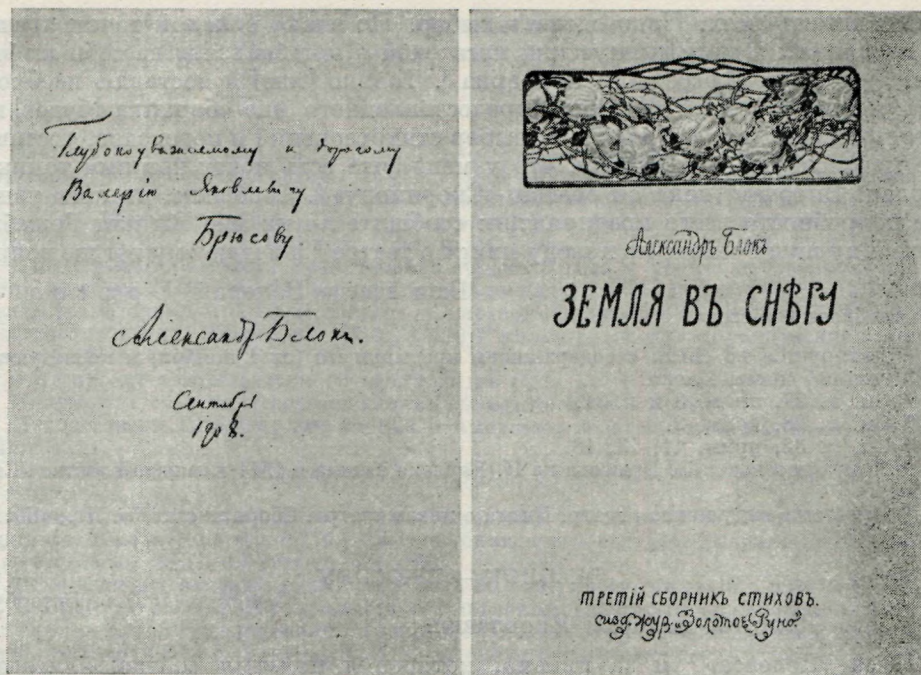 Глубокоуважаемому и дорогому
Валерію Яковлевичу
Брюсову.
Александръ Блокъ.
Сентябрь
1908.
Александръ Блокъ
ЗЕМЛЯ ВЪ СНѢГУ
ТРЕТІЙ СБОРНИКЪ СТИХОВЪ.
изд. жур. „Золотое Руно"